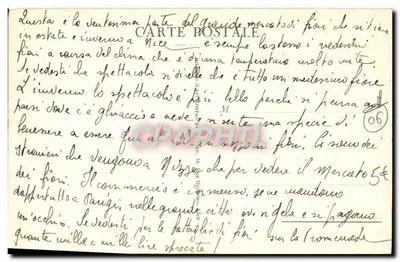 CARTE POSTALE
Questa è la ventesima parte del grande mercato di fiori che si tiene
in estate e inverno a Nice è sempre lo stesso vedesti
fiori a causa del clima che è di una temperatura molto
Se vedesti che spettacolo si di e che è tutto un medesimo fiore
L'inverno lo spettacolo è più bello perchè si pensa
paesi dove c'è ghiaccio e neve e si sente una specie di
benessere a essere qua fiori. Ci sono dei
stranieri che vengono a Nizza che per vedere il Mercato 5€
dei fiori. Il commercio è immenso, se ne mandano
dappertutto a Parigi nelle grande città ove si gela e si pagano
un'occhio. Se vedesti per le battaglie di fiori sur la Promenade
quante mille e mille lire sprecate!
06